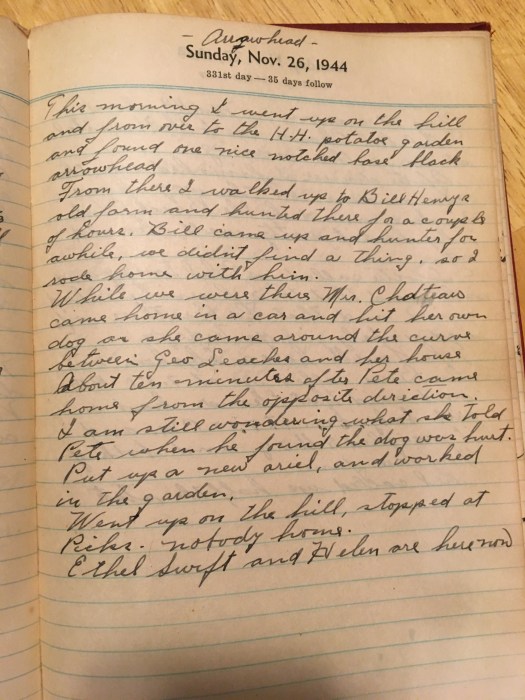 - Arrowhead -
Sunday, Nov. 26, 1944
331st day — 35 days follow
This morning I went up on the hill
and from over to the H.H. potatoe garden
and found one nice notched base black
arrowhead
From there I walked up to Bill Henrys
old farm and hunted there for a couple
of hours. Bill came up and hunter for
awhile, we didn't find a thing. so I
rode home with him.
While we were there Mrs. Chateau
came home in a car and hit her own
dog as she came around the curve
between Geo Leaches and her house
About ten minutes after Pete came
home from the opposite diriction.
I am still wondering what she told
Pete when he found the dog was hurt.
Put up a new ariel, and worked
in the garden.
Went up on the hill, stopped at
Picks. nobody home.
Ethel Swift and Helen are here now